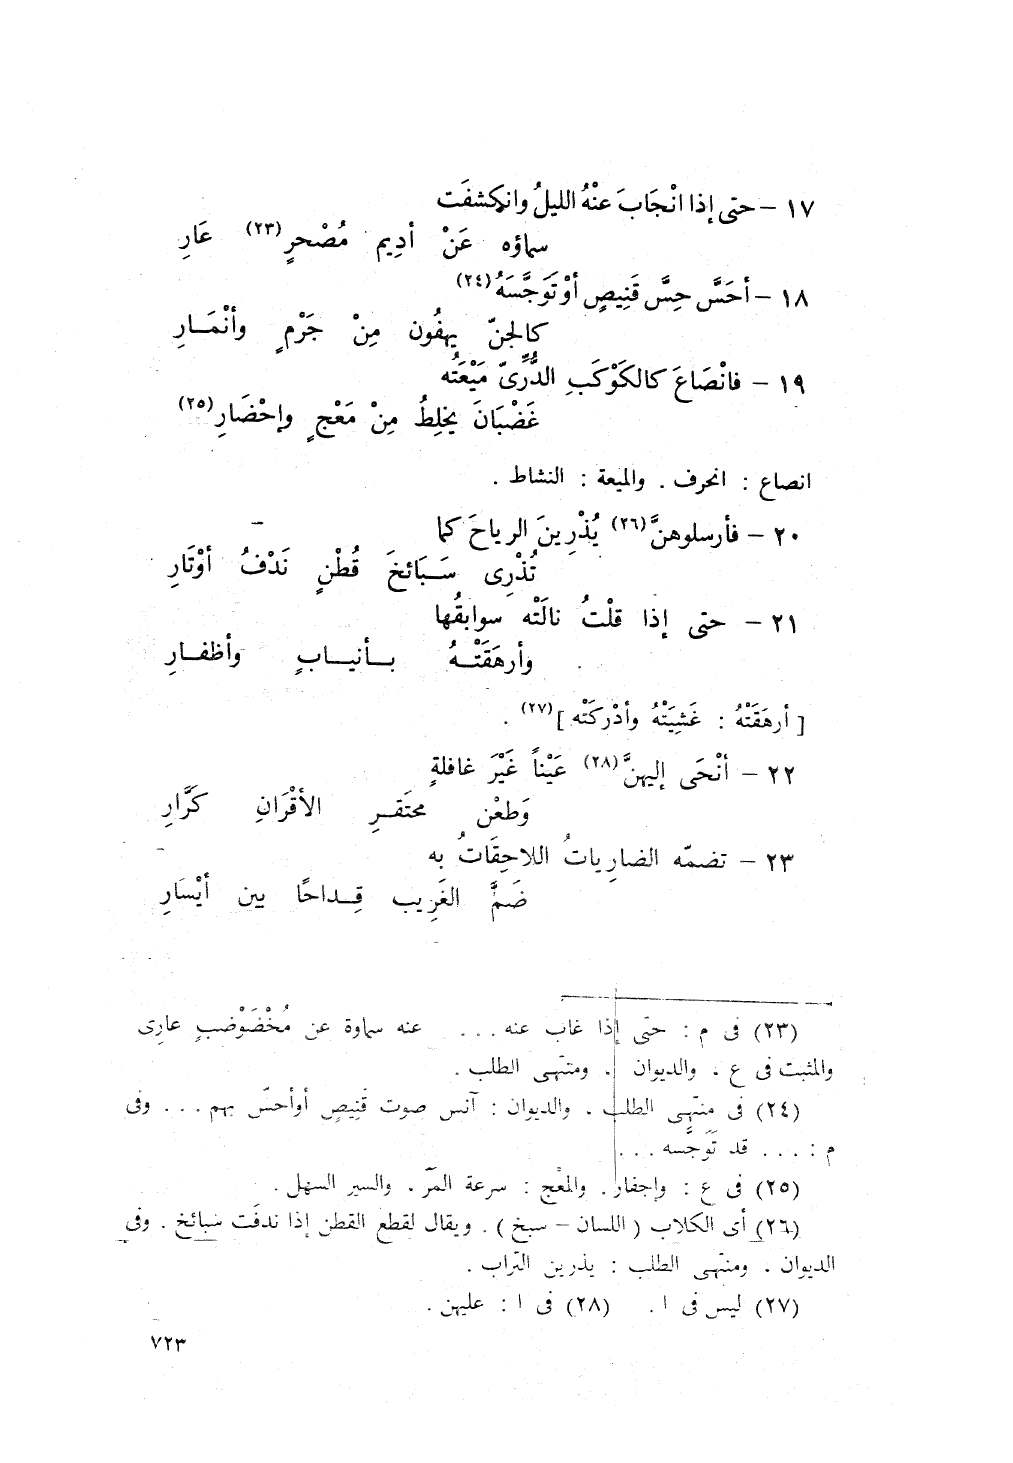 ١٧ – حتى إذا انْجَابَ عنْهُ الليلُ وانكشفَت
سماؤه عَنْ أدِيم مُصْحرٍ (٢٣) عَارِ
١٨ – أحَسَّ حِسَّ قَنِيصٍ أوْ تَوَجَّسَهُ (٢٤)
كالجنّ يهفُون مِنْ جَرْمٍ وأنْمَـارِ
١٩ – فانْصَاعَ كالكَوْكَبِ الدُّرِّىّ مَيْعَتُه
غَضْبَانَ يخلِطُ مِنْ مَعْجٍ وإحْضَارِ (٢٥)
انصاع : انحرف . والميعة : النشاط .
٢٠ – فأرسلوهنَّ (٢٦) يُذْرِينَ الرياحَ كما
تُذْرِى سَـبَائخَ قُطْنٍ نَدْفُ أوْتَارِ
٢١ – حتى إذا قلْتُ نالَتْه سوابقُها
وأرهَقَتْـهُ بـأنيـابٍ وأظفـارِ
[ أرهَقَتْهُ : غَشِيَتْهُ وأدْركَتْه ] (٢٧) .
٢٢ – أنْحَى إليهنَّ (٢٨) عَيْناً غَيْرَ غافلةٍ
وَطعْن محتَقـرِ الأقْرَانِ كَرَّارِ
٢٣ – تضمّه الضارِياتُ اللاحِقَاتُ به
ضَمَّ الغَرِيب قِـداحًا بين أيْسَارِ
(٢٣) فى م : حتّى إذا غاب عنه . . . عنه سماوة عن مُخْضَوْضبٍ عارِى
والمثبت فى ع . والديوان . ومنتهى الطلب .
(٢٤) فى منتهى الطلب . والديوان : آنس صوت قَنِيصٍ أوأحسّ بهم . . . وفى
م : . . . قد تَوَجَّسه . . .
(٢٥) فى ع : وإجفار. والمعْج : سرعة المرّ . والسير السهل .
(٢٦) أى الكلاب ( اللسان – سبخ ) . ويقال لقطع القطن إذا ندفَت سَبائخ . وفى
الديوان . ومنتهى الطلب : يذرين التراب .
(٢٧) ليس فى ا . (٢٨) فى ا : عليهن .
٧٢٣